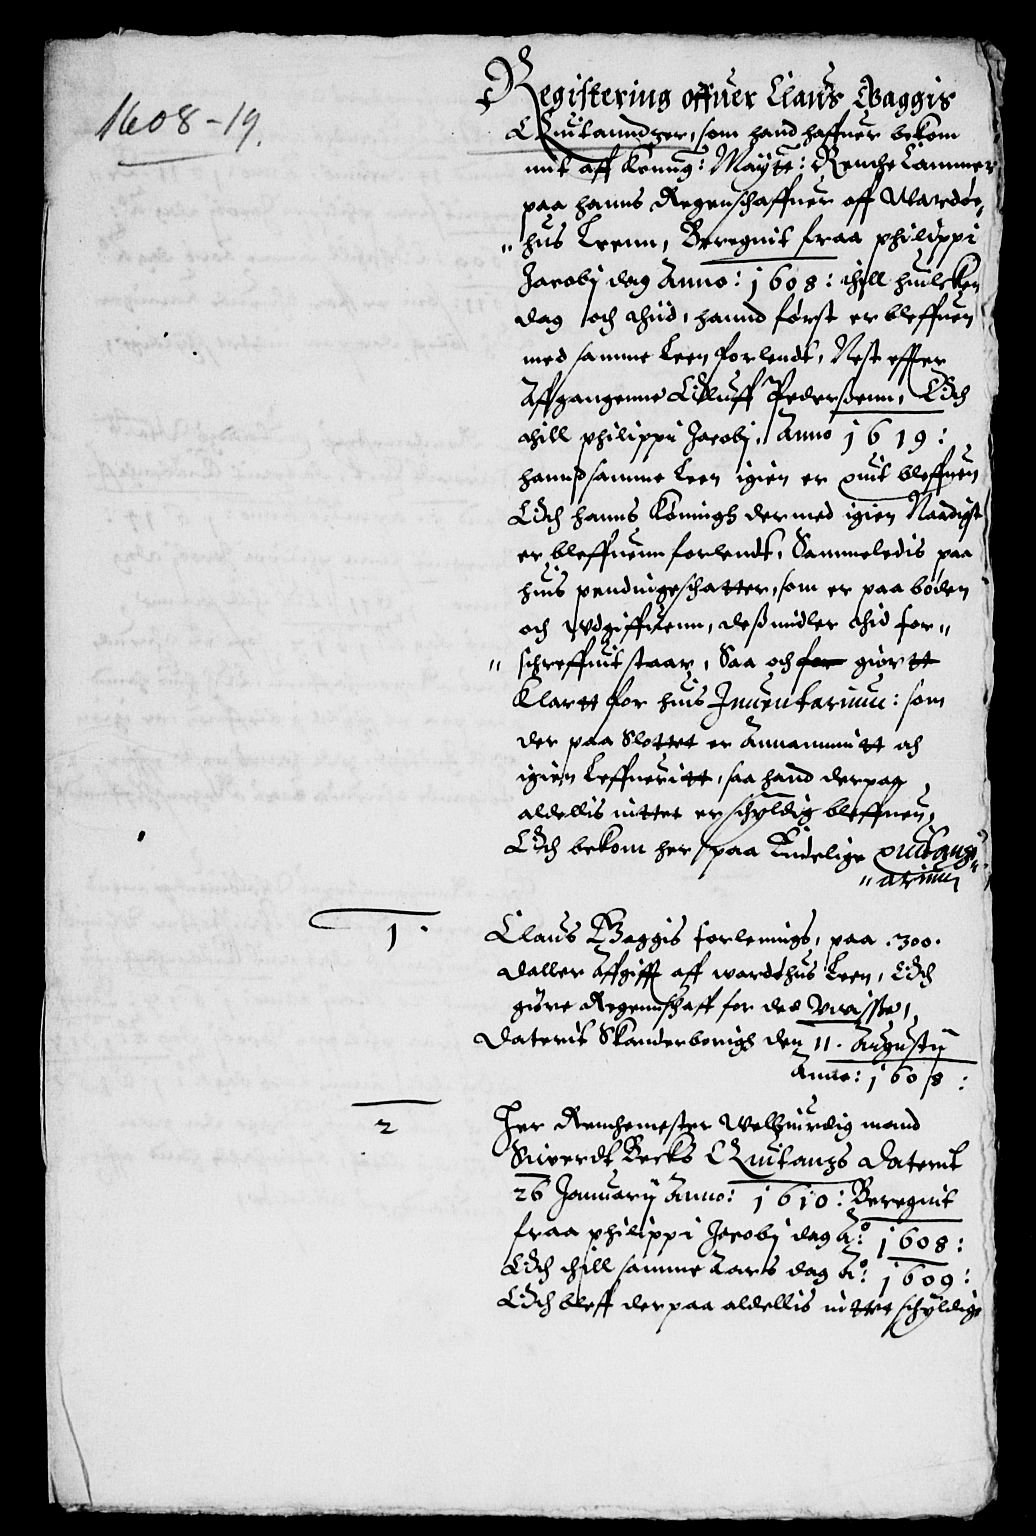 1608-19.
Registering offuer Claus Gaggis
Quitanndzer, som hand haffuer bekom
mit aff Konng: Maytt: Renthe Cammer
paa hanns Regenschaffuer aff Wardøe,,
,, hus Leenn, Beregnit fraa philippi
Jacobj dag Anno: 1608: thill huilcken
dag och thid, hannd først er bleffuen
med samme Leen forlendt, Nest effter
Affgangenne Oluff Pederßenn, Och
thill philippi Jacobj, Anno 1619:
hannd samme Leen igien er quit bleffuen
Och hanns Køningh dermed igien Naadigst
er bleffuenn forlendt, Sammeledis paa
huis pendingeschatter, som er paa bøden
och udgiffuenn, deß midler thid for,,
,, schreffuit staar, Saa och for giortt
Klartt for huis Inuentarium: som
der paa Slottet er Annammitt och
igien leffueritt, saa hand derpaa
aldellis inttet er schyldig bleffuen,
Och bekom her paa Endelige quitantz,,
,, arium
1.
Claus Gaggis forlenings, paa .300.
daller Affgifft aff wardøhus Leen, Och
giøre Regennschaff for des Uvisße,
Daterit Skanderborigh den 11. Augustij
Anno: 1608:
2
Her Renthemester Welbiurdig mand
Siuerdt Becks Quitantzs Daterit
26 Januarij Anno: 1610: Beregnit
fraa philippi Jacobj dag Ao: 1608:
Och thill samme Aars dag Ao: 1609:
Och bleff der paa aldellis inttet schyldige